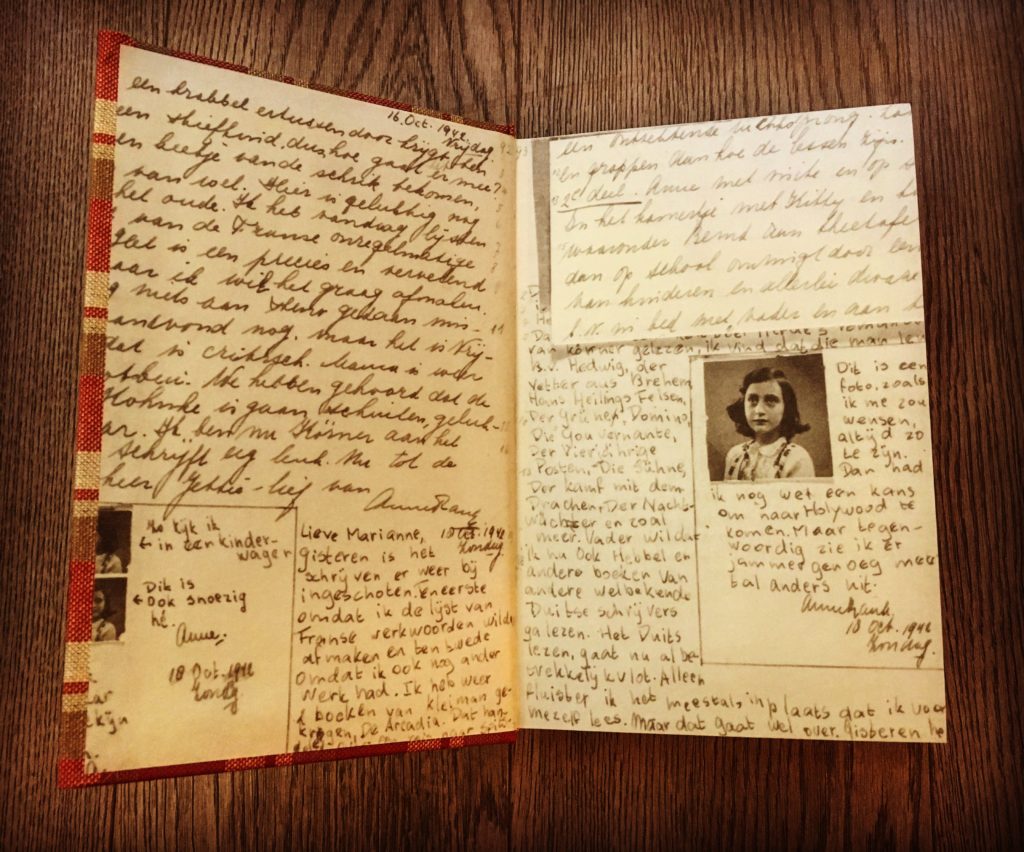 16. Oct. 1942.
Vrijdag
een krabbel ertussen door krijgt
een stiefkind, dus hoe gaat er mee?
en beetje van de schrik bekomen,
van wel. Hier is gelukkig nog
het oude. Ik heb vandaag lijsten
van de Franse onregelmatige
is een precies en vervelend
aar ik wil het graag afmaken.
niets aan gedaan
andvond nog, maar het is Vrij-
dat is critisch. Mama is weer
We hebben gehoord dat de
is gaan schuilen, geluk-
ar. Ik ben nu Körner aan het
erg leuk. Nu tot de
keer
lief van
Anne Frank
Zo kijk ik
← in een kinder-
wagen
Dit is
← Ook snoezig
hè.
Anne.
18 Oct. 1942
Zondag
Lieve Marianne,
Zondag.
Gisteren is het
schrijven er weer bij
ingeschoten. Teneerste
omdat ik de lijst van
Franse werkwoorden wilde
afmaken en ten tweede
omdat ik ook nog ander
werk had. Ik heb weer
2 boeken van kleiman ge-
kregen, De Arcadia. Dat han-
een ontzettende
en grappen aan hoe de lessen zijn.
2e deel. Anne met visite en op
In het kamertje met Kitty en
waaronder Bernd aan theetafel
dan op school omringd door een
van kinderen en allerlei
in bed met vader en aan
van Körner gelezen, ik vind dat die man
B.v. Hedwig, der
Vetter aus Bremen,
Hans Heilings Felsen,
Der Grüne Domino,
Die Gouvernante,
Der Vierjährige
Posten, Die Sühne,
Der kamf mit dem
Drachen, Der Nacht-
wächter en zoal
meer. Vader wil dat
ik nu ook Hebbel en
andere boeken van
andere welbekende
Duitse schrijvers
ga lezen. Het Duits
lezen, gaat nu al be-
trekkelijk vlot. Alleen
fluister ik het meestal, in plaats dat ik voor
mezelf lees. Maar dat gaat wel over. Gisteren he
Dit is een
foto, zoals
ik me zou
wensen,
altijd zo
te zijn.
Dan had
ik nog wel een kans
om naar Holywood te
komen. Maar tegen-
woordig zie ik er
jammer genoeg meest
al anders uit.
Anne Frank.
18 Oct. 1942
Zondag.